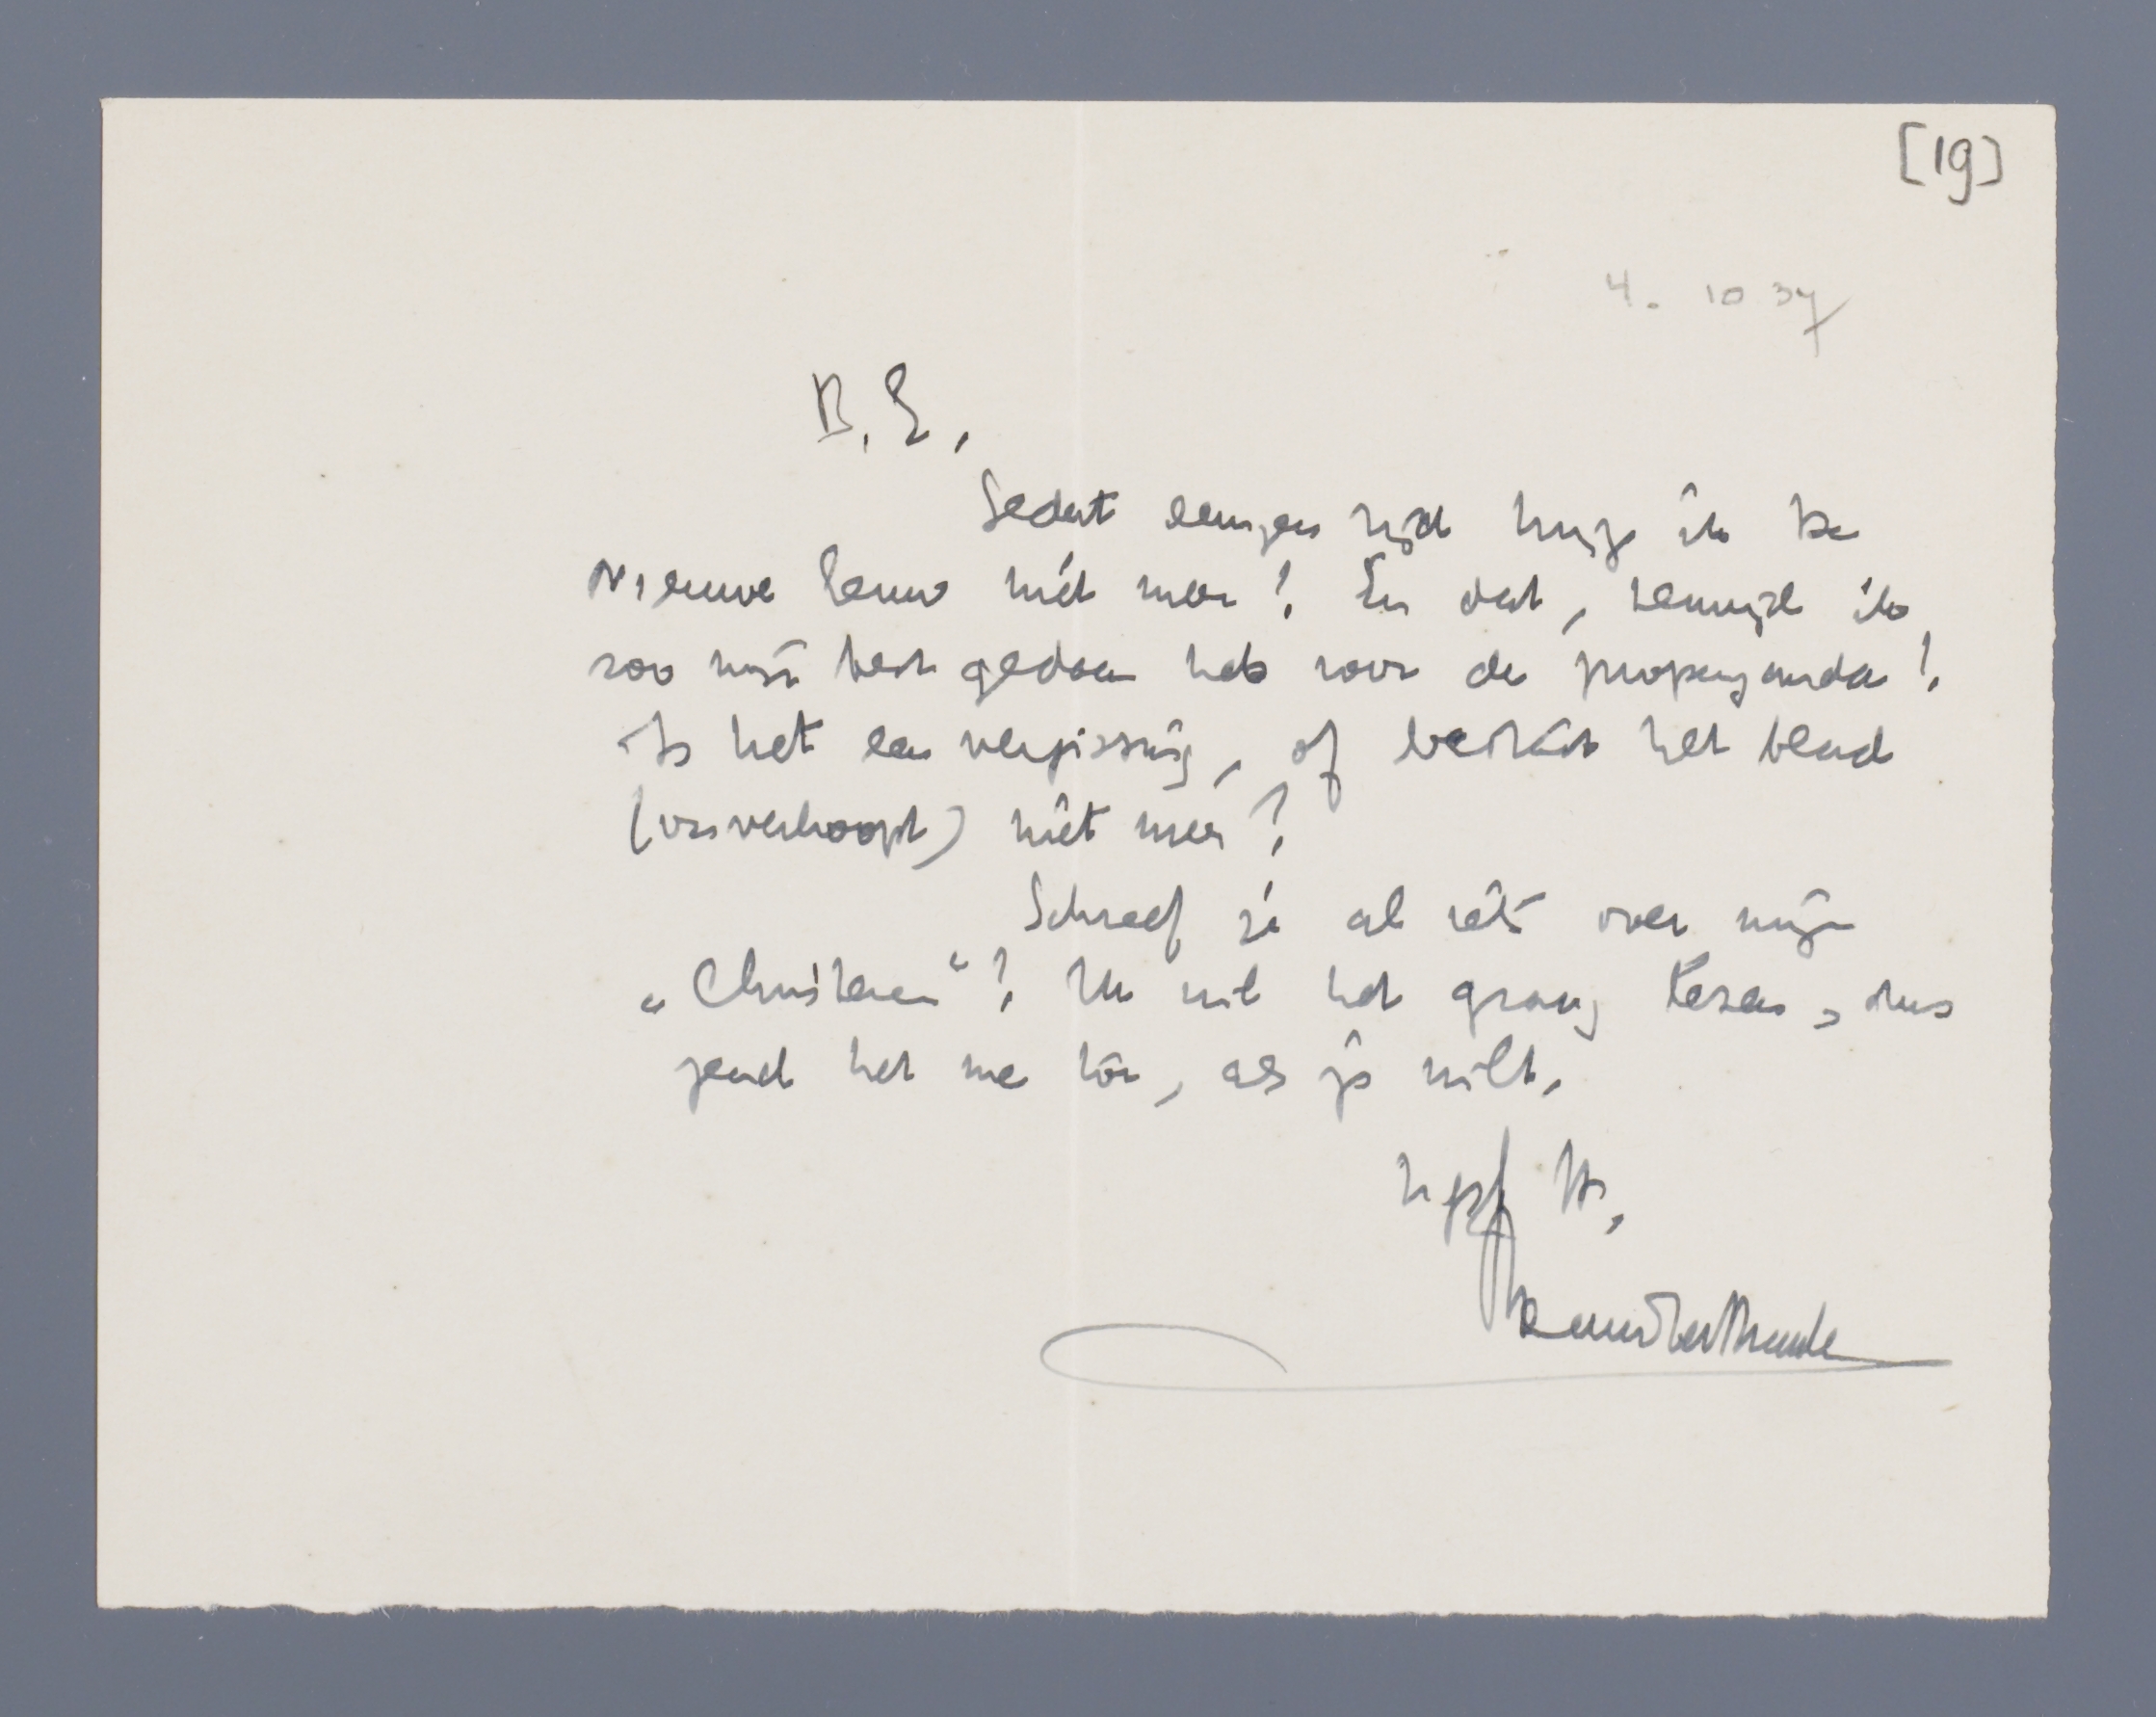 [19]
4. 10 37
B. E.,
Sedert eenigen tijd krijg ik De
Nieuwe Eeuw niet meer! En dat, terwijl ik
zoo mijn best gedaan heb voor de propaganda!
Is het een vergissing, of bestaat het blad
(onverhoopt) niet meer?
Schreef je al iets over mijn
„Christenen“? Ik wil het graag lezen, dus
zend het me toe, als je wilt.
t.